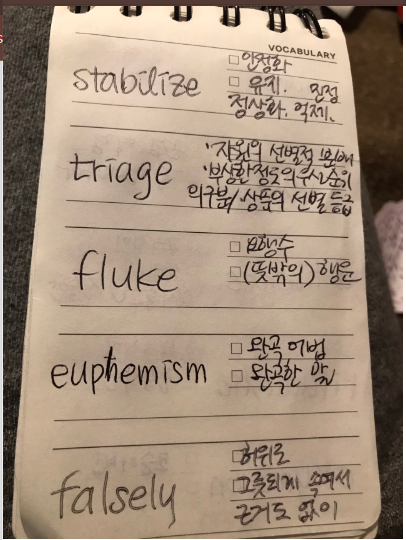 VOCABULARY
stabilize
안정화
유지. 진정
정상화. 억제.
triage
자원의 선별적 분배
부상한 정도의 우선순위
의 구분/상품의 선별 등급
fluke
요행수
(뜻밖의) 행운
euphemism
완곡 어법
완곡한 말
falsely
허위로
그릇되게 속여서
근거도 없이